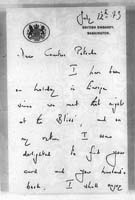 BRITISH EMBASSY,
WASHINGTON.
July 12th 73
Dear Countess
I have been
on holiday in Europe
since we met that night
at the Bliss', and on
my return I was
delighted to find your
card and your husband's
book. I shall enjoy